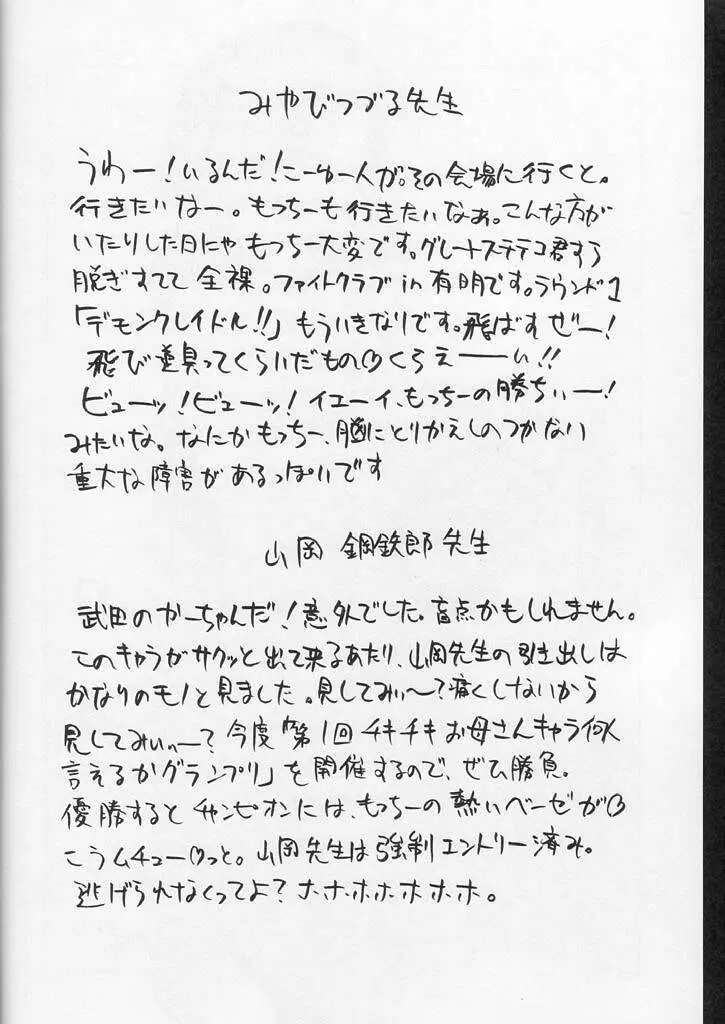 みやびつづる先生
うわー!いるんだ!こーゆー人が。その会場に行くと。
行きたいなー。もっちーも行きたいなぁ。こんな方が
いたりした日にゃもっちー大変です。グレートステテコ君すら
脱ぎすてて全裸。ファイトクラブin有明です。ラウンド1
「デモンクレイドル!!」もういきなりです。飛ばすぜー!
飛び道具ってくらいだもの♡くらえーーい!!
ビューッ!ビューッ!イエーイ、もっちーの勝ちぃー!
みたいな。なにかもっちー、脳にとりかえしのつかない
重大な障害があるっぽいです
山岡鋼鉄郎先生
武田のかーちゃんだ!意外でした。盲点かもしれません。
このキャラがサクッと出て来るあたり、山岡先生の引き出しは
かなりのモノと見ました。見してみぃ~?痛くしないから
見してみぃぃ~?今度「第1回チキチキお母さんキャラ何人
言えるかグランプリ」を開催するので、ぜひ勝負。
優勝するとチャンピオンには、もっちーの熱いベーゼが♡
こうムチュー♡っと。山岡先生は強制エントリー済み。
逃げられなくってよ?ホホホホホホホ。